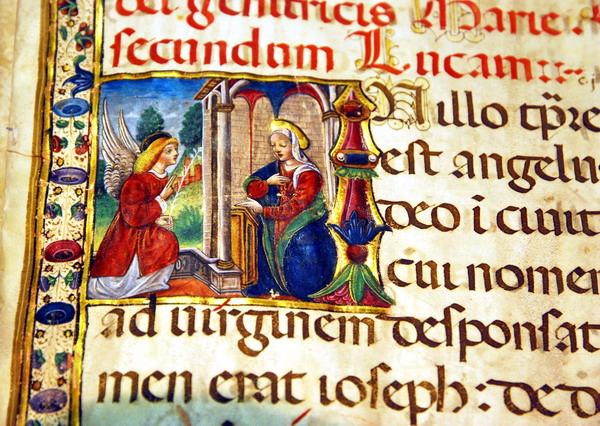 dei genitricis Marie.
secundum Lucam:
N illo tpre
est angelu
deo i ciuit
cui nomen
ad uirginem desponsat
men erat ioseph: de d